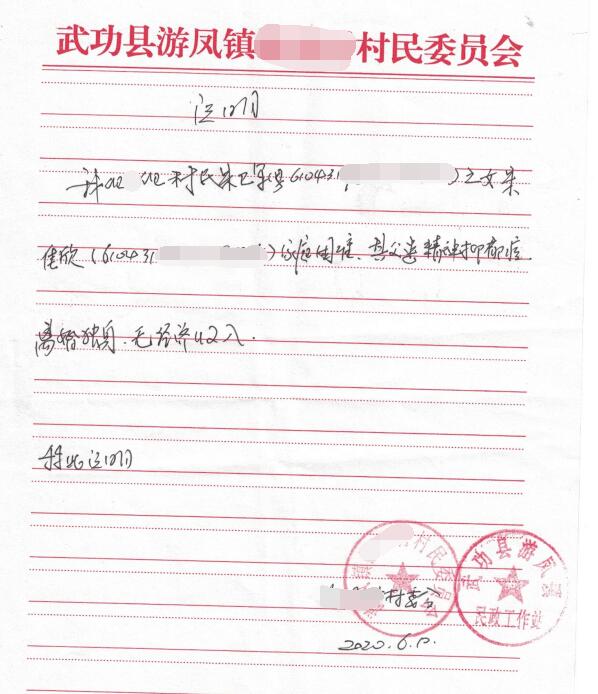 武功县游凤镇 村民委员会
证明
村民朱 610431 )之女朱
佳欣(610431 )家庭困难、其父患精神抑郁症
离婚独身、无经济收入.
特此证明
村民委员会
村委会
武功县游凤镇
民政工作站
2020.6.